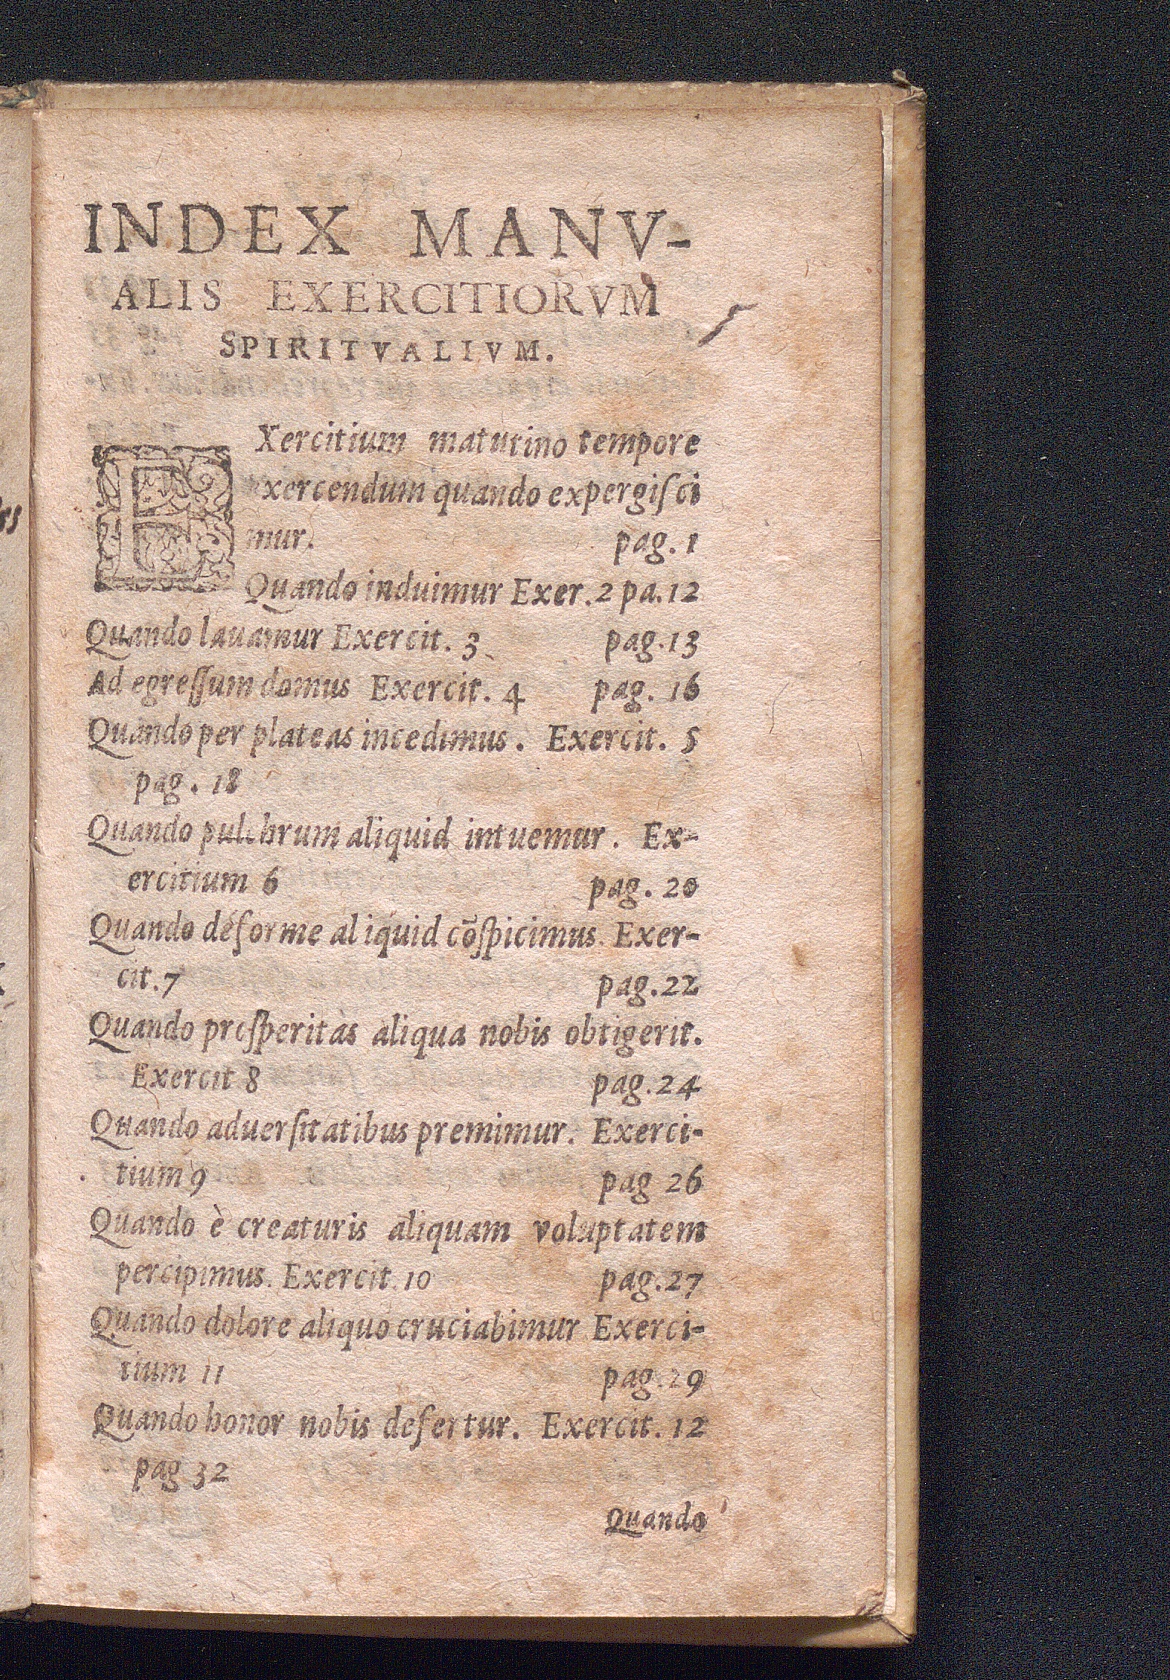 INDEX MANV-
ALIS EXERCITIORVM
SPIRITVALIVM.
EXercitium maturino tempore
exercendum quando expergiſci
mur. pag. 1
Quando induimur Exer. 2 pa. 12
Quando lauamur Exercit. 3 pag. 13
Ad egreſſum domus Exercit. 4 pag. 16
Quando per plateas incedimus. Exercit. 5
pag. 18
Quando pulchrum aliquid intuemur. Ex-
ercitium 6 pag. 20
Quando déforme aliquid cõſpicimus. Exer-
cit. 7 pag. 22
Quando proſperitas aliqua nobis obtigerit.
Exercit 8 pag. 24
Quando aduerſitatibus premimur. Exerci-
tium 9 pag 26
Quando è creaturis aliquam voluptatem
percipimus. Exercit. 10 pag. 27
Quando dolore aliquo cruciabimur Exerci-
tium 11 pag. 29
Quando honor nobis defertur. Exercit. 12
pag 32
Quando